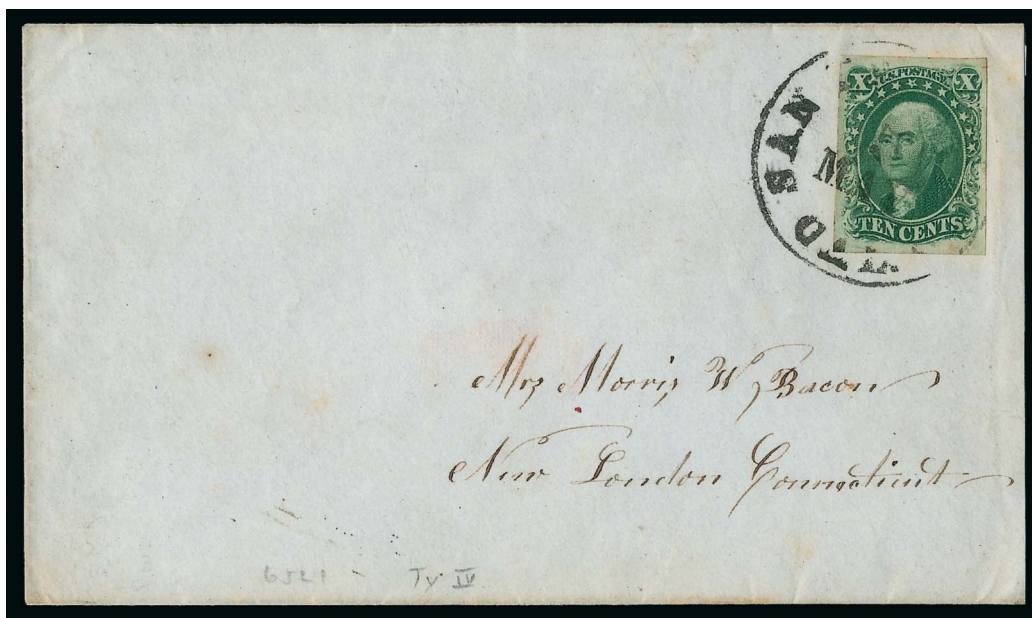 X U.S. POSTAGE X
TEN CENTS
SAN
Mrs Morris W Bacon
New London Connecticut
Ty IV